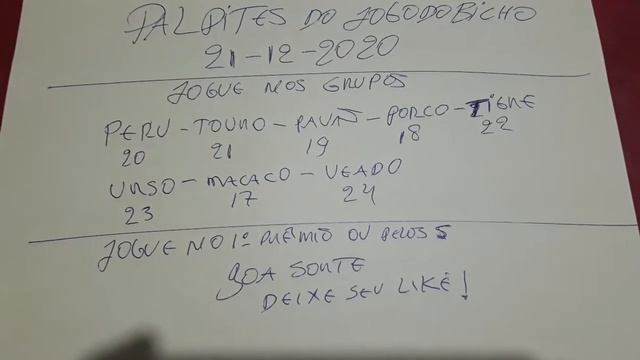 PALPITES DO JOGO DO BICHO
21-12-2020
JOGUE NOS GRUPOS
PERU - TOURO - PAVÃO - PORCO - TIGRE
20 21 19 18 22
URSO - MACACO - VEADO
23 17 24
JOGUE NO 1º PRÊMIO OU PELOS 5
BOA SORTE
DEIXE SEU LIKE!